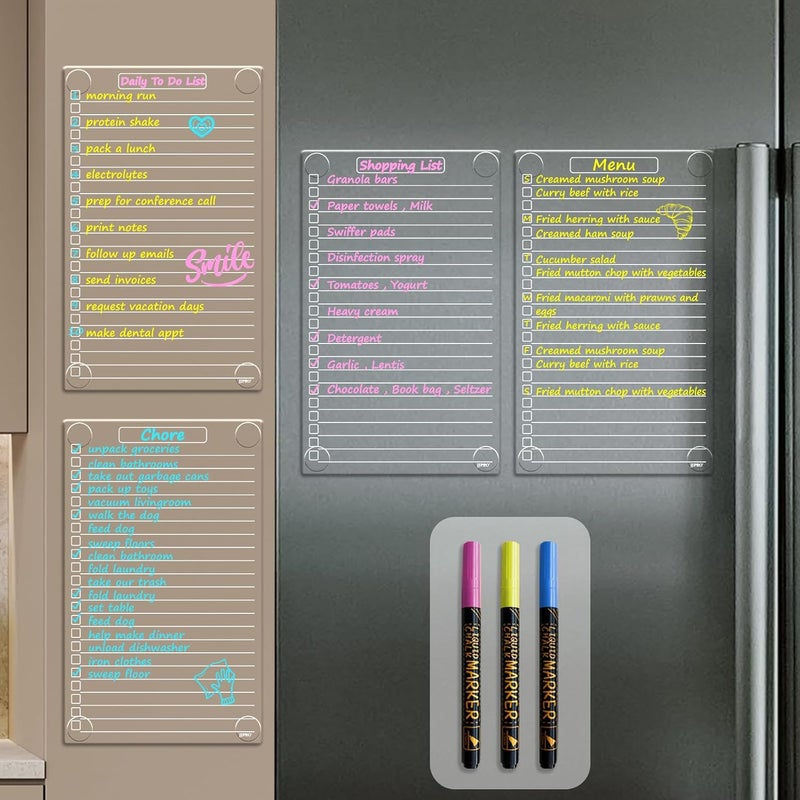 Daily To Do List
1 morning run
2 protein shake
3 pack a lunch
4 electrolytes
5 prep for conference call
6 print notes
7 follow up emails
Smile
8 send invoices
9 request vacation days
10 make dental appt
Chore
unpack groceries
clean bathrooms
take out garbage cans
pack up toys
vacuum livingroom
walk the dog
feed dog
sweep floors
clean bathroom
fold laundry
take our trash
fold laundry
set table
feed dog
help make dinner
unload dishwasher
iron clothes
sweep floor
Shopping List
Granola bars
Paper towels , Milk
Swiffer pads
Disinfection spray
Tomatoes , Yogurt
Heavy cream
Detergent
Garlic , Lentis
Chocolate , Book bag , Seltzer
Menu
S Creamed mushroom soup
Curry beef with rice
M Fried herring with sauce
Creamed ham soup
T Cucumber salad
Fried mutton chop with vegetables
W Fried macaroni with prawns and
eggs
T Fried herring with sauce
F Creamed mushroom soup
Curry beef with rice
S Fried mutton chop with vegetables
LIQUID CHALK MARKER
LIQUID CHALK MARKER
LIQUID CHALK MARKER